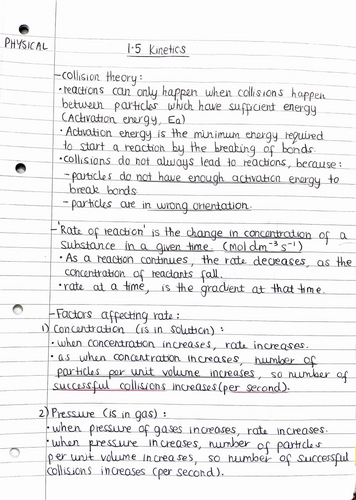 PHYSICAL
1.5 Kinetics
- Collision theory:
• reactions can only happen when collisions happen
between particles which have sufficient energy
(Activation energy, Ea)
• Activation energy is the minimum energy required
to start a reaction by the breaking of bonds.
• collisions do not always lead to reactions, because:
- particles do not have enough activation energy to
break bonds
- particles are in wrong orientation.
- 'Rate of reaction' is the change in concentration of a
substance in a given time. (mol dm⁻³ s⁻¹)
• As a reaction continues, the rate decreases, as the
concentration of reactants fall.
• rate at a time, is the gradient at that time.
- Factors affecting rate:
1) Concentration (is in solution):
• when concentration increases, rate increases.
• as when concentration increases, number of
particles per unit volume increases, so number of
successful collisions increases (per second).
2) Pressure (is in gas):
• when pressure of gases increases, rate increases.
• when pressure increases, number of particles
per unit volume increases, so number of successful
collisions increases (per second).